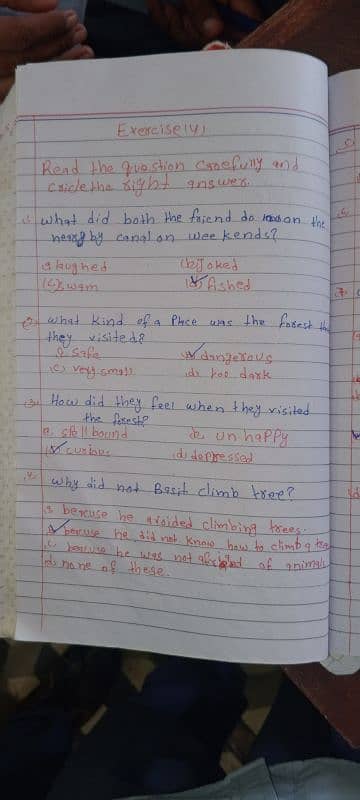 Exercise (4)
Read the question carefully and
cricle the right answer.
what did both the friend do on the
near by canal on wee kends?
a laughed (b) Joked
(c) swam (d) fished
2. what kind of a place was the forest
they visited?
a safe b dangerous
c) very small d) too dark
3. How did they feel when they visited
the forest?
a. spell bound b. un happy
c curious d) depressed
4. why did not Basit climb tree?
a becuse he avoided climbing trees.
b becuse he did not know how to climb a tree
c. becuse he was not of animals
d) none of these.